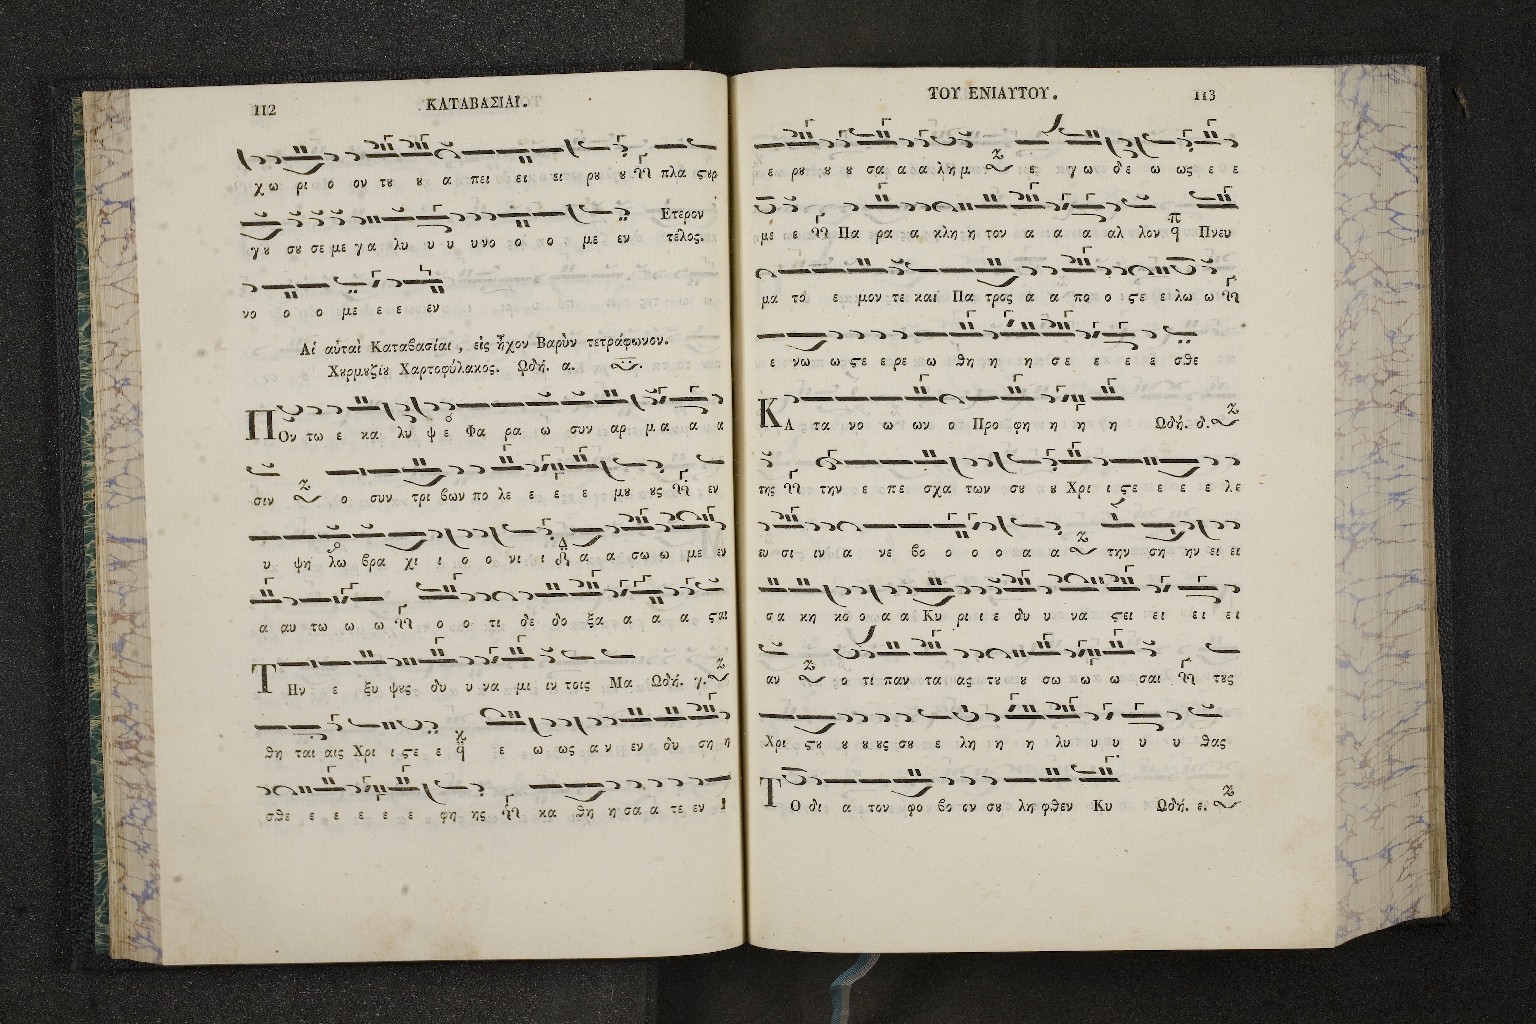 112 ΚΑΤΑΒΑΣΙΑΙ.
χω ρι ο ον τȣ ȣ α πει ει ει ρȣ ȣ πλα ϛȣρ
γȣ σȣ σε με γα λυ υ υ υνο ο ο με εν
Ετερον τέλος.
νο ο ο με ε ε εν
Αἱ αὐταὶ Καταβασίαι, εἰς ἦχον Βαρὺν τετράφωνον.
Χȣρμȣζίȣ Χαρτοφύλακος. Ωδή. α.
ΠΟν τω ε κα λυ ψε Φα ρα ω συν αρ μα α α
σιν ο συν τρι βων πο λε ε ε ε μȣ ȣς εν
υ ψη λω βρα χι ι ο ο νι ι α α σω ω με εν
α αυ τω ω ω ο ο τι δε δο ξα α α α ϛαι
ΤΗν ε ξυ ψȣς δυ υ να μι ιν τοις Μα Ωδή. γ.
θη ται αις Χρι ι ϛε ε ε ω ως αν εν δυ ση η
σθε ε ε ε ε ε φη ης κα θη η σα α τε εν Ι
ΤΟΥ ΕΝΙΑΥΤΟΥ. 113
ε ρȣ ȣ ȣ σα α α λημ ε γω δε ω ως ε ε
με ε Πα ρα α κλη η τον α α α αλ λον Πνευ
μα το ε μον τε και Πα τρος α α πο ο ϛε ε λω ω
ε νω ω ϛε ε ρε ω θη η η σε ε ε ε σθε
ΚΑ τα νο ω ων ο Προ φη η η η Ωδή. δ.
της την ε πε σχα των σȣ ȣ Χρι ι ϛε ε ε ε λε
ευ σι ιν α νε βο ο ο ο α α την ση ην ει ει
σα κη κο ο α α Κυ ρι ι ε δυ υ να ϛει ει ει ει
αν ο τι παν τα ας τȣ ȣ σω ω ω σαι τȣς
Χρι ϛȣ ȣ ȣ ȣς σȣ ε λη η η λυ υ υ υ υ θας
ΤΟ δι α τον φο βο ον σȣ λη φθεν Κυ Ωδή. ε.